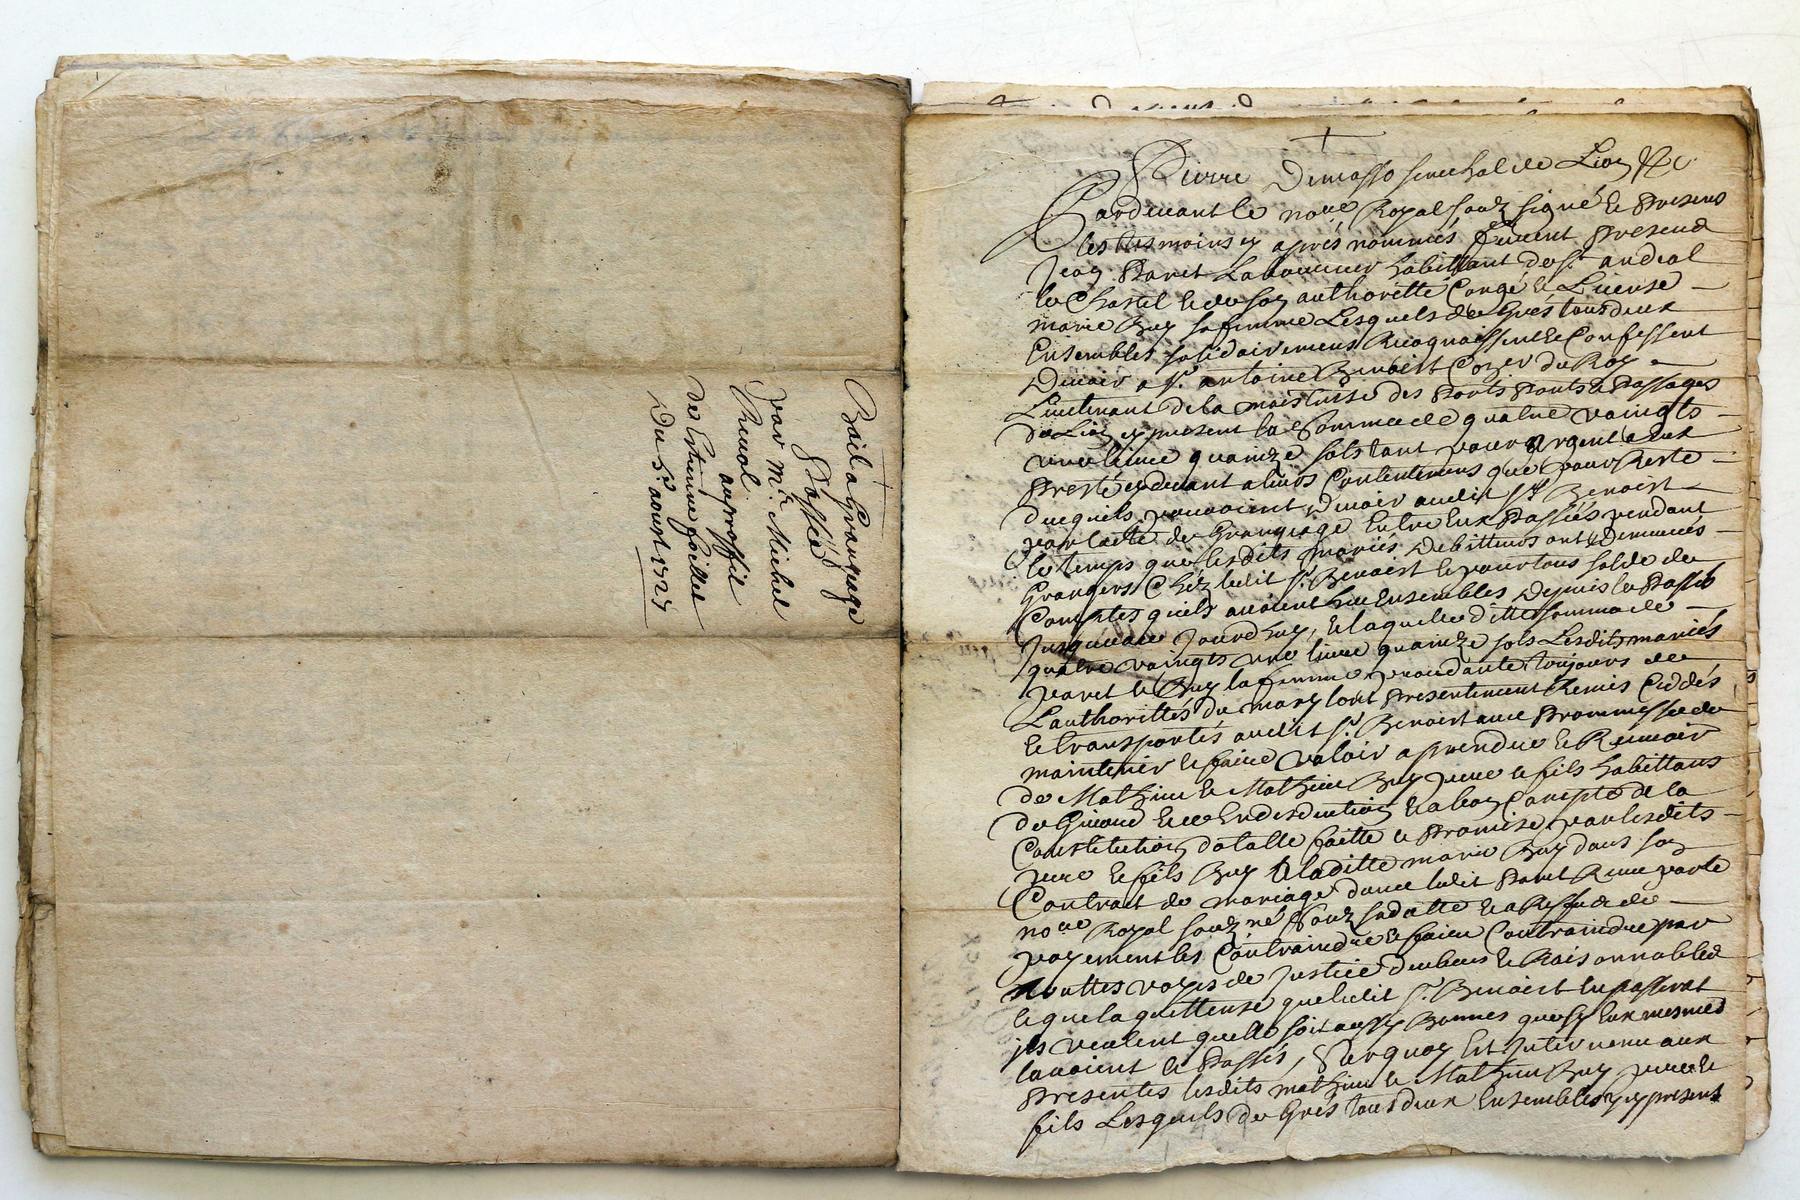 Bail a Grangeage
Passé
par Mr. Michel
Thenol
au proffit
de Estienne goillet
Du 5e. aoust 1724
Pierre Demasso senechal de Lion &c
Pardevant le nore Royal souz signé & presens
les tesmoins cy apres nommés furent presend
Jean Paret Laboureur habittant de st. andeol
le Chastel & de son authoritté Congé & License
marie Buy sa femme Lesquels de Grés tous deux
Ensembles solidairemens Recognaissent & Confessent
Devoir a sr. antoine Benoist Conser du Roy
Lieutenant de la maistrise des Ports Ponts & Passages
de Lion cy present la somme de quatre vaingts
une livre quainze sols tant pour argent a eux
Presté cy devant a leurs Contentemens que pour Reste
ducquels pouvoient Devoir audit sr. Benoist
par l'acte de Grangeage Entre Eux Passés pendant
le temps que lesdits mariés Debitteurs ont Demeurés
Grangers Chéz ledit sr. Benoist & pour tous solde de
Comptes quils avoient heu Ensembles Depuis le Passé
Jusques au Jourdhuy, & laquelle ditte somme de
quatre vaingts une livre quainze sols Lesdits mariés
paret & Buy la femme procedante toujours de
L'authorittés du mary ont presentement Remis Ceddés
& transportés audit sr. Benoist avec Prommesse de
maintenir & faire valoir a prendre & Recevoir
de Mathieu & Mathieu Buy pere & fils habittans
de Givord & ce En desduction & a bon Compte de la
Constitution dotalle faitte & Promise par lesdits
pere & fils Buy a laditte marie Buy dans son
Contrait de mariage avec ledit Paret Receu par le
nore Royal souz né souz sa datte & a Reffus de
payement les Contraindre & faire Contraindre par
touttes voyes de Justice deubues & Raisonnables
& que la quittense que ledit sr. Benoist En passerat
jls veulent quelle soit aussy Bonnes que sy Eux mesmes
lavoient & Passés, Surquoy Est Intervenu aux
Presentes lesdits mathieu & Mathieu Buy pere &
fils Lesquels de Grés tous deux Ensembles cy present